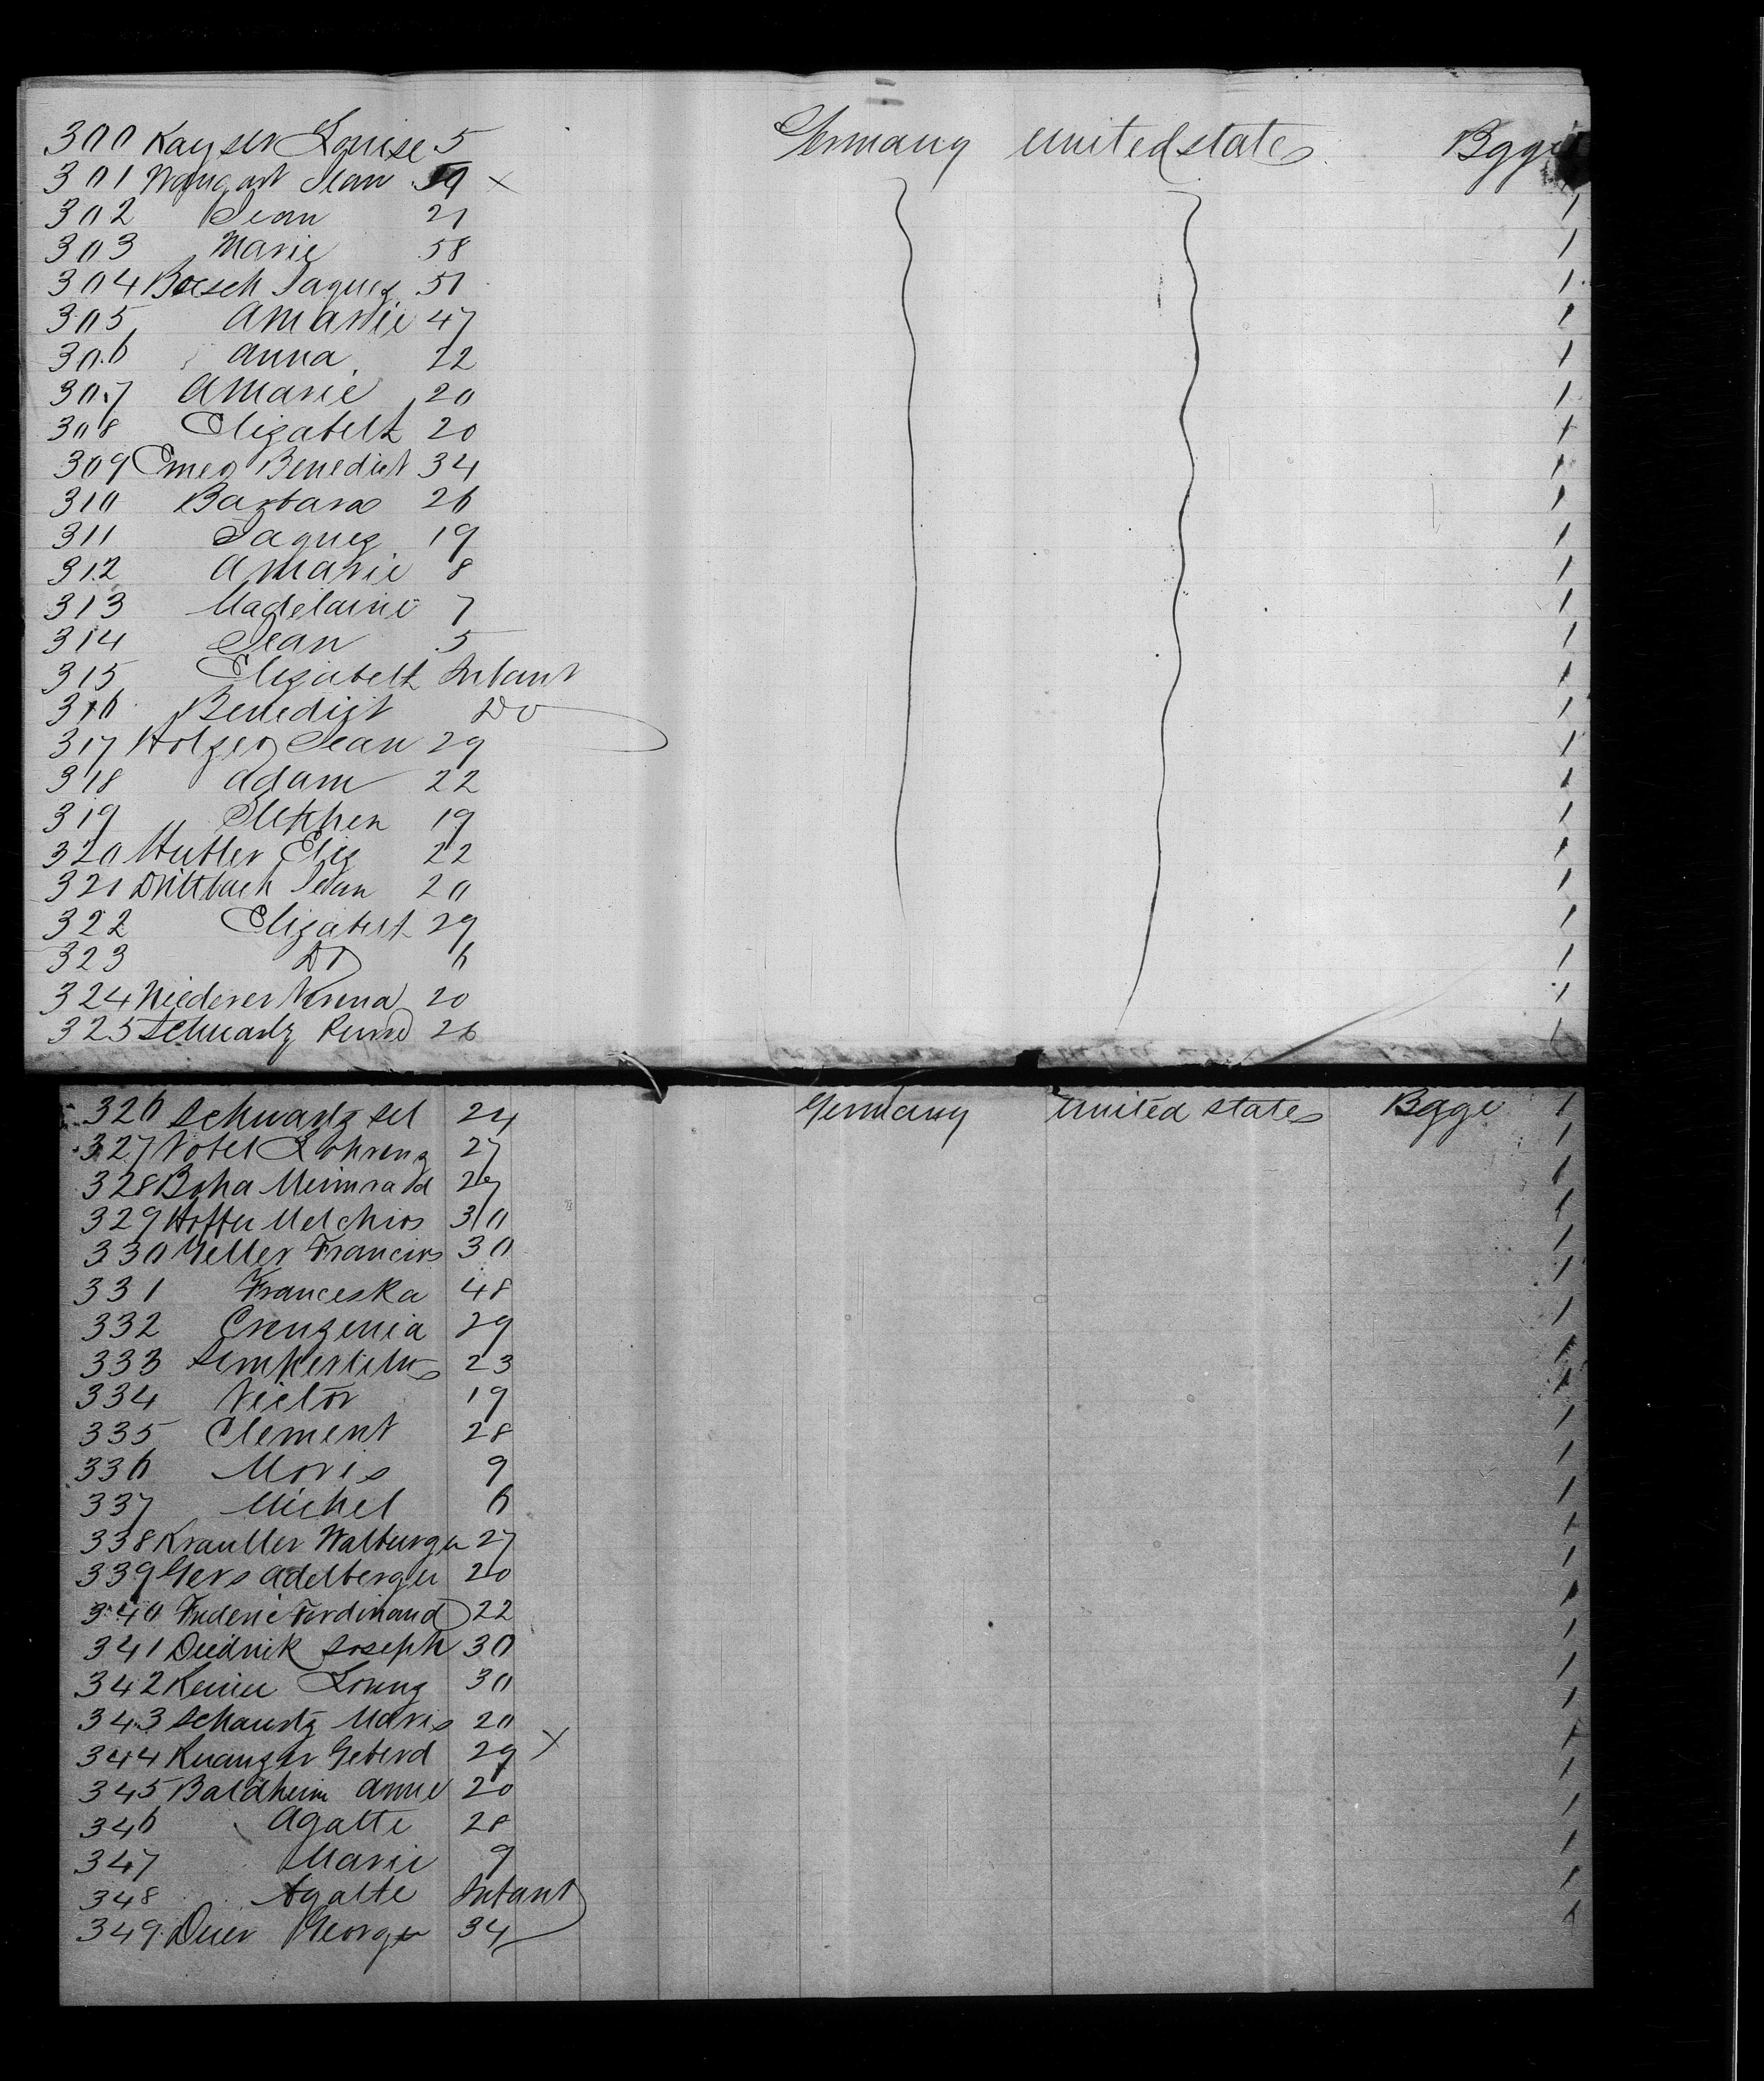 300 Kayser Louise 5 Germany United states Bgge
301 Wangart Jean 59 x 1
302 Jean 21 1
303 Marie 58 1
304 Boesch Jaques 51 1
305 AMarie 47 1
306 Anna 22 1
307 AMarie 20 1
308 Elizabeth 20 1
309 Benedict 34 1
310 Barbara 26 1
311 Jaques 19 1
312 AMarie 8 1
313 Madelaine 7 1
314 Jean 5 1
315 Elizabeth Infant 1
316 Benedict Do 1
317 Holzer Jean 29 1
318 Adam 22 1
319 Stephen 19 1
320 Hutler Eliz 22 1
321 Jean 20 1
322 Elizabeth 29 1
323 Do 6 1
324 Niederer Verena 20 1
325 Schwartz 26 1
326 Schwartz Sel 24 Germany United states Bgge 1
327 Votel Lohrenz 27 1
328 Boha Meinradd 1
329 Melchior 30 1
330 Geller Francois 30 1
331 Franceska 48 1
332 Crenzenia 29 1
333 23 1
334 Victor 19 1
335 Clement 28 1
336 Moris 9 1
337 Michel 6 1
338 Krautler Walburga 27 1
339 Gers Adelberger 20 1
340 Frederic Ferdinand 22 1
341 Diednik Joseph 30 1
342 30 1
343 Schwartz Maris 20 1
344 Geberd 29 x 1
345 Baldheim Anne 20 1
346 Agatte 28 1
347 Marie 9 1
348 Agatte Infant 1
349 Duer George 34 1